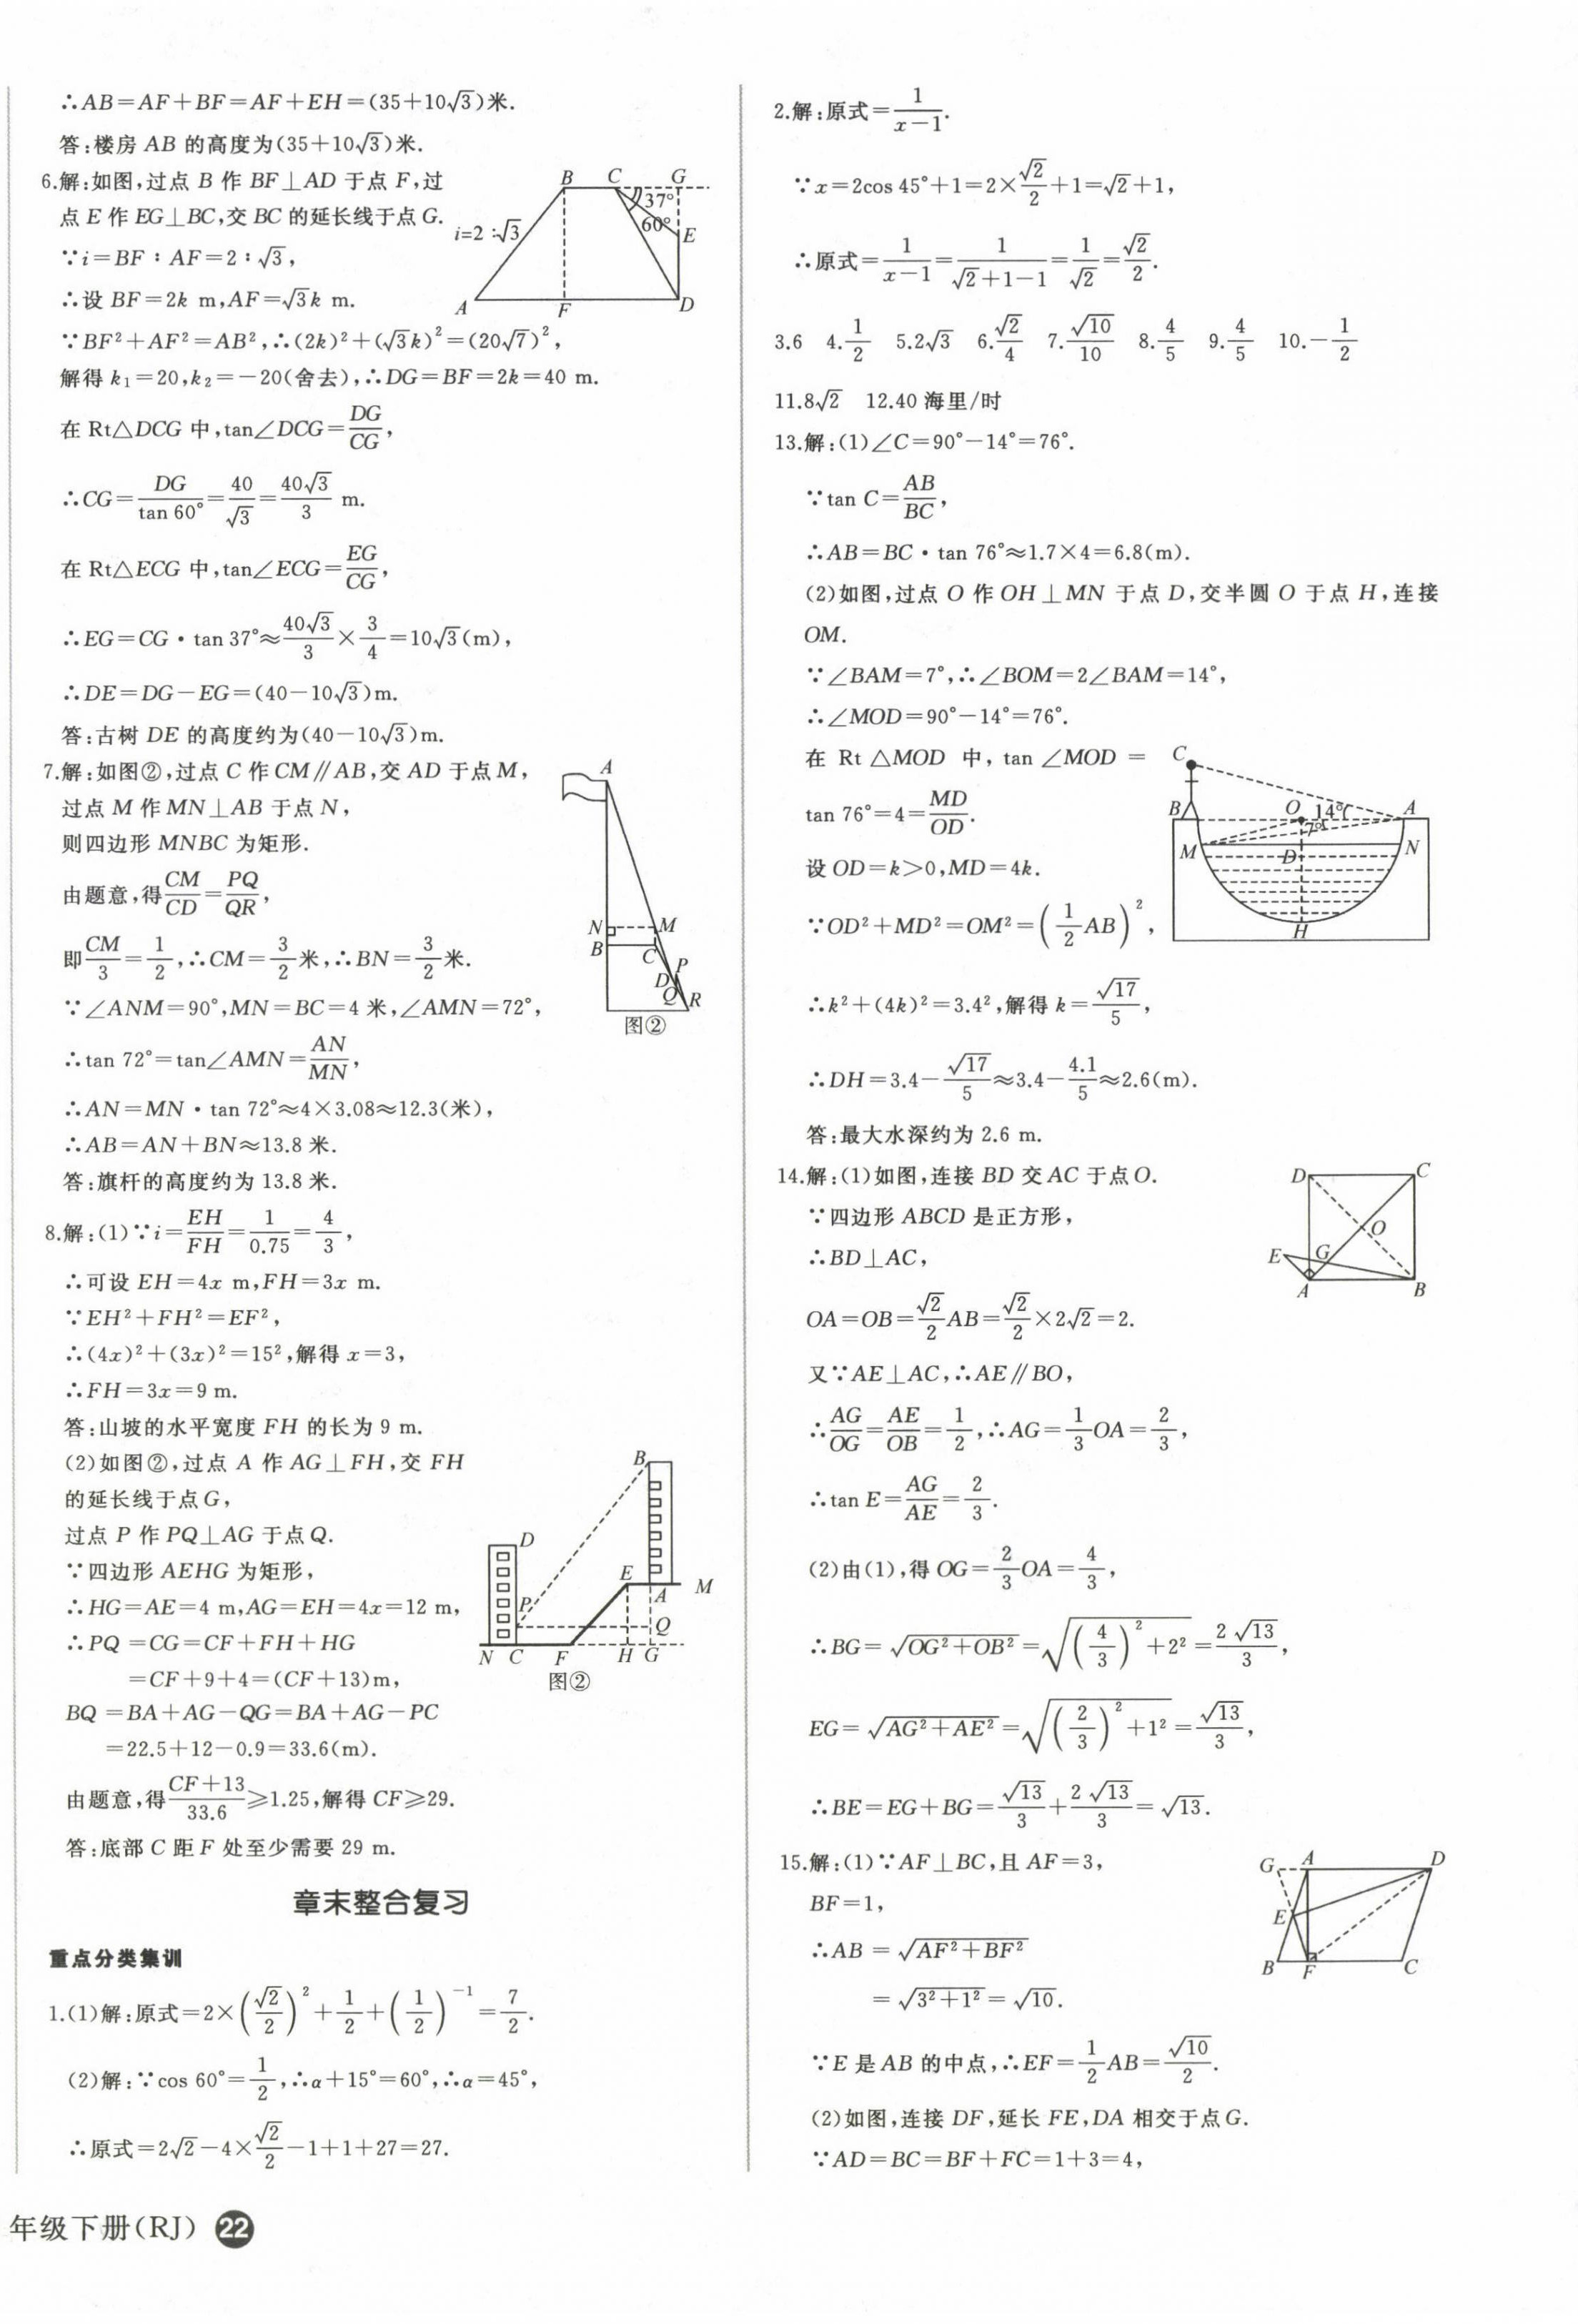 ∴AB=AF+BF=AF+EH=(35+10√3)米.
答:楼房 AB 的高度为(35+10√3)米.
6.解:如图,过点 B 作 BF⊥AD 于点 F,过
点 E 作 EG⊥BC,交 BC 的延长线于点 G.
∵i=BF∶AF=2∶√3,
∴设 BF=2k m,AF=√3k m.
B C G
37°
60°
i=2∶√3
E
A F D
∵BF²+AF²=AB²,∴(2k)²+(√3k)²=(20√7)²,
解得 k₁=20,k₂=-20(舍去),∴DG=BF=2k=40 m.
在 Rt△DCG 中,tan∠DCG=DG/CG,
∴CG=DG/tan 60°=40/√3=40√3/3 m.
在 Rt△ECG 中,tan∠ECG=EG/CG,
∴EG=CG·tan 37°≈40√3/3×3/4=10√3(m),
∴DE=DG-EG=(40-10√3)m.
答:古树 DE 的高度约为(40-10√3)m.
7.解:如图②,过点 C 作 CM∥AB,交 AD 于点 M,
过点 M 作 MN⊥AB 于点 N,
则四边形 MNBC 为矩形.
由题意,得CM/CD=PQ/QR,
即CM/3=1/2,∴CM=3/2米,∴BN=3/2米.
∵∠ANM=90°,MN=BC=4 米,∠AMN=72°,
∴tan 72°=tan∠AMN=AN/MN,
∴AN=MN·tan 72°≈4×3.08≈12.3(米),
∴AB=AN+BN≈13.8 米.
答:旗杆的高度约为 13.8 米.
A
N M
B C
P
D
Q R
图②
8.解:(1)∵i=EH/FH=1/0.75=4/3,
∴可设 EH=4x m,FH=3x m.
∵EH²+FH²=EF²,
∴(4x)²+(3x)²=15²,解得 x=3,
∴FH=3x=9 m.
答:山坡的水平宽度 FH 的长为 9 m.
(2)如图②,过点 A 作 AG⊥FH,交 FH
的延长线于点 G,
过点 P 作 PQ⊥AG 于点 Q.
∵四边形 AEHG 为矩形,
∴HG=AE=4 m,AG=EH=4x=12 m,
∴PQ=CG=CF+FH+HG
=CF+9+4=(CF+13)m,
BQ=BA+AG-QG=BA+AG-PC
=22.5+12-0.9=33.6(m).
B
D
E
M
P A
Q
N C F H G
图②
由题意,得CF+13/33.6≥1.25,解得 CF≥29.
答:底部 C 距 F 处至少需要 29 m.
章末整合复习
重点分类集训
1.(1)解:原式=2×(√2/2)²+1/2+(1/2)⁻¹=7/2.
(2)解:∵cos 60°=1/2,∴α+15°=60°,∴α=45°,
∴原式=2√2-4×√2/2-1+1+27=27.
2.解:原式=1/(x-1).
∵x=2cos 45°+1=2×√2/2+1=√2+1,
∴原式=1/(x-1)=1/(√2+1-1)=1/√2=√2/2.
3.6 4.1/2 5.2√3 6.√2/4 7.√10/10 8.4/5 9.4/5 10.-1/2
11.8√2 12.40 海里/时
13.解:(1)∠C=90°-14°=76°.
∵tan C=AB/BC,
∴AB=BC·tan 76°≈1.7×4=6.8(m).
(2)如图,过点 O 作 OH⊥MN 于点 D,交半圆 O 于点 H,连接
OM.
∵∠BAM=7°,∴∠BOM=2∠BAM=14°,
∴∠MOD=90°-14°=76°.
在 Rt △MOD 中, tan ∠MOD =
tan 76°=4=MD/OD.
设 OD=k>0,MD=4k.
∵OD²+MD²=OM²=(1/2AB)²,
∴k²+(4k)²=3.4²,解得 k=√17/5,
∴DH=3.4-√17/5≈3.4-4.1/5≈2.6(m).
答:最大水深约为 2.6 m.
C
B O 14° A
7°
M D N
H
14.解:(1)如图,连接 BD 交 AC 于点 O.
∵四边形 ABCD 是正方形,
∴BD⊥AC,
OA=OB=√2/2AB=√2/2×2√2=2.
又∵AE⊥AC,∴AE∥BO,
∴AG/OG=AE/OB=1/2,∴AG=1/3OA=2/3,
∴tan E=AG/AE=2/3.
D C
O
E G
A B
(2)由(1),得 OG=2/3OA=4/3,
∴BG=√(OG²+OB²)=√((4/3)²+2²)=2√13/3,
EG=√(AG²+AE²)=√((2/3)²+1²)=√13/3,
∴BE=EG+BG=√13/3+2√13/3=√13.
15.解:(1)∵AF⊥BC,且 AF=3,
BF=1,
∴AB=√(AF²+BF²)
=√(3²+1²)=√10.
G A D
E
B F C
∵E 是 AB 的中点,∴EF=1/2AB=√10/2.
(2)如图,连接 DF,延长 FE,DA 相交于点 G.
∵AD=BC=BF+FC=1+3=4,
年级下册(RJ) 22